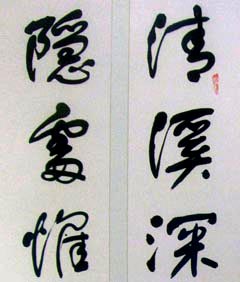 清溪深
隱處惟